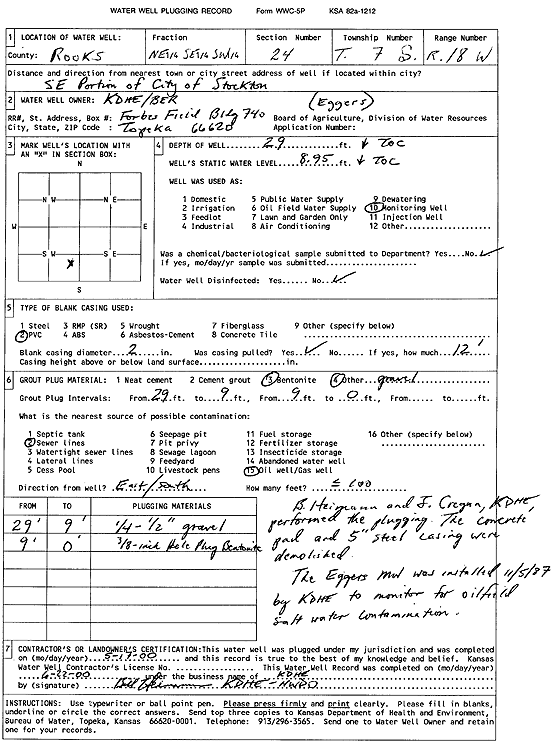 WATER WELL PLUGGING RECORD Form WWC-5P KSA 82a-1212
1 LOCATION OF WATER WELL: Fraction Section Number Township Number Range Number
County: ROOKS NE1/4 SE1/4 SW1/4 24 T. 7 S. R. 18 W
Distance and direction from nearest town or city street address of well if located within city?
SE Portion of City of Stockton
2 WATER WELL OWNER: KDHE/BER (Eggers)
RR#, St. Address, Box #: Forbes Field Bldg 740 Board of Agriculture, Division of Water Resources
City, State, ZIP Code : Topeka 66620 Application Number:
3 MARK WELL'S LOCATION WITH AN "X" IN SECTION BOX:
N
N W N E
W E
S W S E
X
S
4 DEPTH OF WELL.....29.....ft. ↓ TOC
WELL'S STATIC WATER LEVEL....8.95....ft. ↓ TOC
WELL WAS USED AS:
1 Domestic 5 Public Water Supply 9 Dewatering
2 Irrigation 6 Oil Field Water Supply 10 Monitoring Well
3 Feedlot 7 Lawn and Garden Only 11 Injection Well
4 Industrial 8 Air Conditioning 12 Other....................
Was a chemical/bacteriological sample submitted to Department? Yes....No.✓
If yes, mo/day/yr sample was submitted....................
Water Well Disinfected: Yes..... No..✓
5 TYPE OF BLANK CASING USED:
1 Steel 3 RMP (SR) 5 Wrought 7 Fiberglass 9 Other (specify below)
2 PVC 4 ABS 6 Asbestos-Cement 8 Concrete Tile ....................
Blank casing diameter....2.....in. Was casing pulled? Yes.✓.. No...... If yes, how much....12'
Casing height above or below land surface....................in.
6 GROUT PLUG MATERIAL: 1 Neat cement 2 Cement grout 3 Bentonite 4 Other...gravel
Grout Plug Intervals: From..29.ft. to...9..ft., From...9..ft. to...0..ft., From...... to......ft.
What is the nearest source of possible contamination:
1 Septic tank 6 Seepage pit 11 Fuel storage 16 Other (specify below)
2 Sewer lines 7 Pit privy 12 Fertilizer storage
3 Watertight sewer lines 8 Sewage lagoon 13 Insecticide storage
4 Lateral lines 9 Feedyard 14 Abandoned water well
5 Cess Pool 10 Livestock pens 15 Oil well/Gas well
Direction from well? East/South How many feet? ± 100
FROM TO PLUGGING MATERIALS
29' 9' 1/4-1/2" gravel
9' 0' 3/8-inch Hole Plug Bentonite
B. Heimann and J. Cregan, KDHE,
performed the plugging. The concrete
pad and 5" steel casing were
demolished.
The Eggers MW was installed 11/5/87
by KDHE to monitor for oilfield
salt water contamination.
7 CONTRACTOR'S OR LANDOWNER'S CERTIFICATION:This water well was plugged under my jurisdiction and was completed
on (mo/day/year)....5-17-00..... and this record is true to the best of my knowledge and belief. Kansas
Water Well Contractor's License No. .................... This Water Well Record was completed on (mo/day/year)
6-22-00 under the business name of KDHE
by (signature) KDHE-NWDO
INSTRUCTIONS: Use typewriter or ball point pen. Please press firmly and print clearly. Please fill in blanks,
underline or circle the correct answers. Send top three copies to Kansas Department of Health and Environment,
Bureau of Water, Topeka, Kansas 66620-0001. Telephone: 913/296-3565. Send one to Water Well Owner and retain
one for your records.